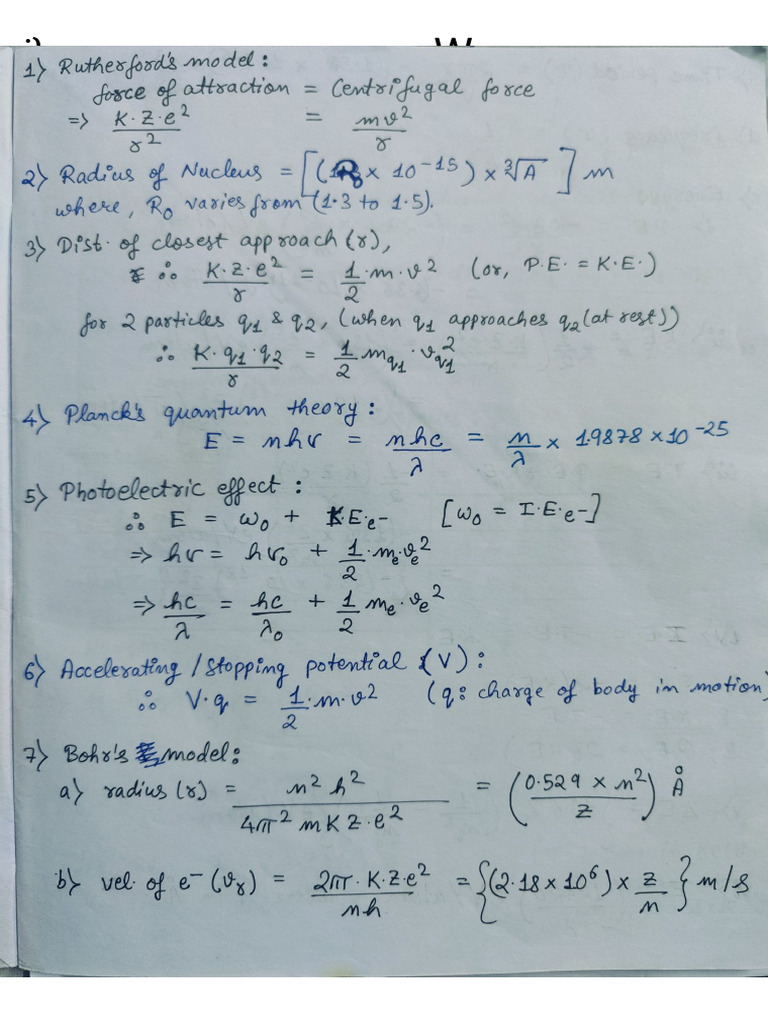 1) Rutherford's model:
force of attraction = Centrifugal force
=> K.Z.e²/r² = mv²/r
2) Radius of Nucleus = [(R₀ x 10⁻¹⁵) x ³√A ] m
where, R₀ varies from (1.3 to 1.5).
3) Dist. of closest approach (r),
∴ K.Z.e²/r = 1/2.m.v² (or, P.E. = K.E.)
for 2 particles q1 & q2, (when q1 approaches q2 (at rest))
∴ K.q1.q2/r = 1/2 m_q1.v_q1²
4) Planck's quantum theory:
E = nhν = nhc/λ = n/λ x 1.9878 x 10⁻²⁵
5) Photoelectric effect:
∴ E = ω₀ + K.E.e⁻ [ω₀ = I.E.e⁻]
=> hν = hν₀ + 1/2.mₑ.vₑ²
=> hc/λ = hc/λ₀ + 1/2 mₑ.vₑ²
6) Accelerating / Stopping potential (V):
∴ V.q = 1/2.m.v² (q: charge of body in motion)
7) Bohr's model:
a) radius (r) = n²h²/4π²mKZ.e² = (0.529 x n²/Z) Å
b) vel. of e⁻ (vᵣ) = 2π.K.Z.e²/nh = {(2.18 x 10⁶) x Z/n} m/s